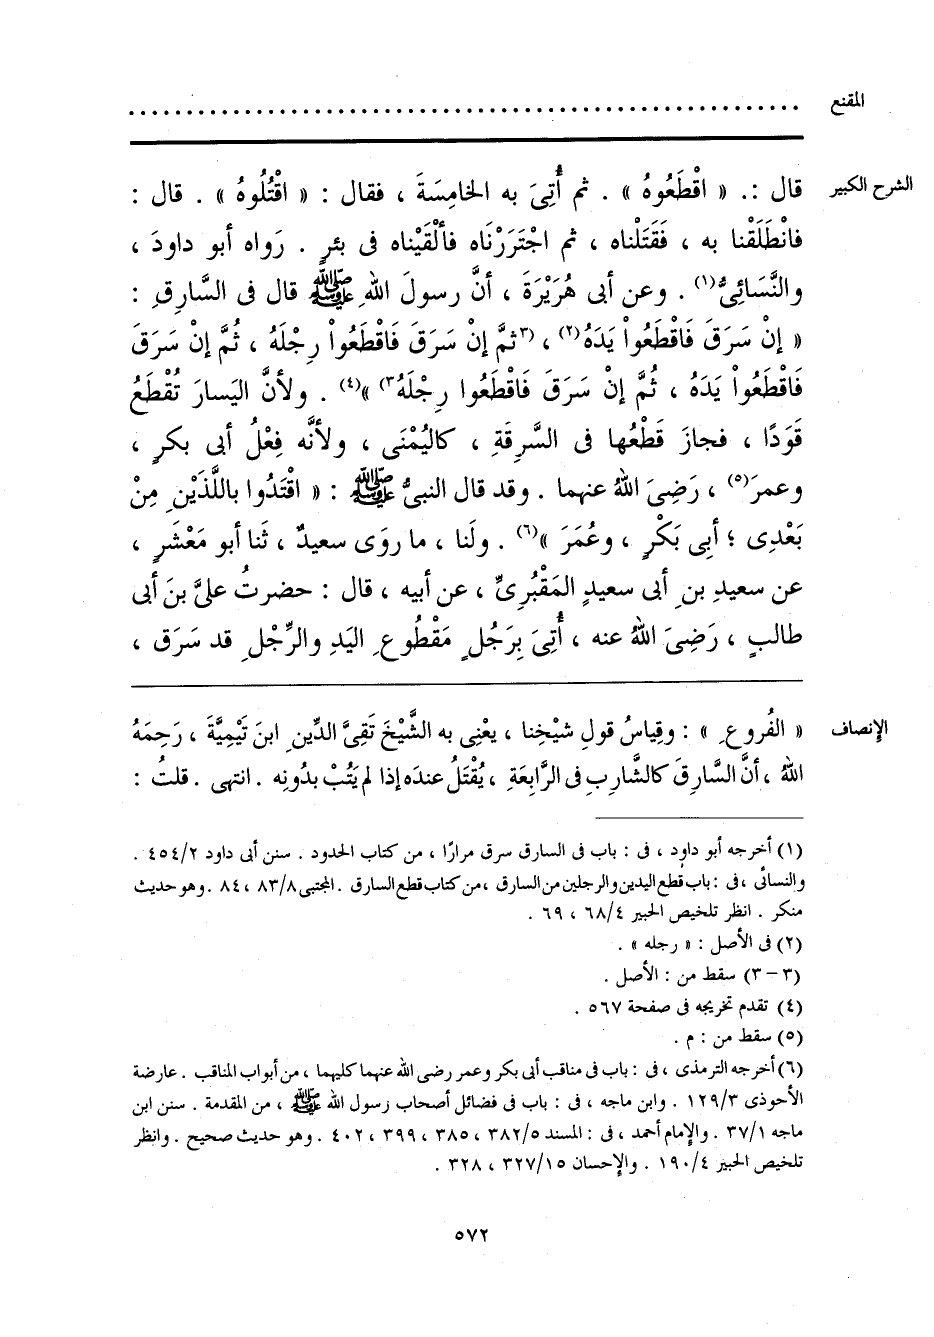 المقنع ........................................................
الشرح الكبير قال : . « اقْطَعُوهُ » . ثم أُتِىَ به الخامِسَةَ ، فقال : « اقْتُلُوهُ » . قال :
فانْطَلَقْنا به ، فَقَتَلْناه ، ثم اجْتَرَرْنَاه فألْقَيْناه فى بئرٍ . رَواه أبو داودَ ،
والنَّسَائِىُّ(١) . وعن أبى هُرَيْرَةَ ، أنَّ رسولَ اللهِ ﷺ قال فى السَّارِقِ :
« إنْ سَرَقَ فَاقْطَعُواْ يَدَهُ(٢) ، (٣ثمَّ إنْ سَرَقَ فَاقْطَعُواْ رِجْلَهُ ، ثُمَّ إنْ سَرَقَ
فَاقْطَعُواْ يَدَهُ ، ثُمَّ إنْ سَرَقَ فَاقْطَعُوا رِجْلَهُ٣) »(٤) . ولأنَّ اليَسارَ تُقْطَعُ
قَوَدًا ، فجازَ قَطْعُها فى السَّرِقَةِ ، كاليُمْنَى ، ولأنَّه فِعْلُ أبى بكرٍ ،
وعمرَ(٥) ، رَضِىَ اللهُ عنهما . وقد قال النبىُّ ﷺ : « اقْتَدُوا باللَّذَيْنِ مِنْ
بَعْدِى ؛ أبِى بَكْرٍ ، وعُمَرَ »(٦) . ولَنا ، ما روَى سعيدٌ ، ثَنا أبو مَعْشَرٍ ،
عن سعيدِ بنِ أبى سعيدٍ المَقْبُرِىِّ ، عن أبيه ، قال : حضرتُ علىَّ بنَ أبى
طالبٍ ، رَضِىَ اللهُ عنه ، أُتِىَ بِرَجُلٍ مَقْطُوعِ اليَدِ والرِّجْلِ قد سَرَق ،
الإنصاف « الفُروعِ » : وقِياسُ قولِ شيْخِنا ، يعْنِى به الشَّيْخَ تَقِىَّ الدِّينِ ابنَ تَيْمِيَّةَ ، رَحِمَهُ
اللهُ ، أنَّ السَّارِقَ كالشَّارِبِ فى الرَّابعَةِ ، يُقْتَلُ عندَه إذا لم يَتُبْ بدُونِه . انتهى . قلتُ :
(١) أخرجه أبو داود ، فى : باب فى السارق سرق مرارًا ، من كتاب الحدود . سنن أبى داود ٤٥٤/٢ .
والنسائى ، فى : باب قطع اليدين والرجلين من السارق ، من كتاب قطع السارق . المجتبى ٨٣/٨ ، ٨٤ . وهو حديث
منكر . انظر تلخيص الحبير ٦٨/٤ ، ٦٩ .
(٢) فى الأصل : « رجله » .
(٣ – ٣) سقط من : الأصل .
(٤) تقدم تخريجه فى صفحة ٥٦٧ .
(٥) سقط من : م .
(٦) أخرجه الترمذى ، فى : باب فى مناقب أبى بكر وعمر رضى الله عنهما كليهما ، من أبواب المناقب . عارضة
الأحوذى ١٢٩/٣ . وابن ماجه ، فى : باب فى فضائل أصحاب رسول الله ﷺ ، من المقدمة . سنن ابن
ماجه ٣٧/١ . والإمام أحمد ، فى : المسند ٣٨٢/٥ ، ٣٨٥ ، ٣٩٩ ، ٤٠٢ . وهو حديث صحيح . وانظر
تلخيص الحبير ١٩٠/٤ . والإحسان ٣٢٧/١٥ ، ٣٢٨ .
٥٧٢